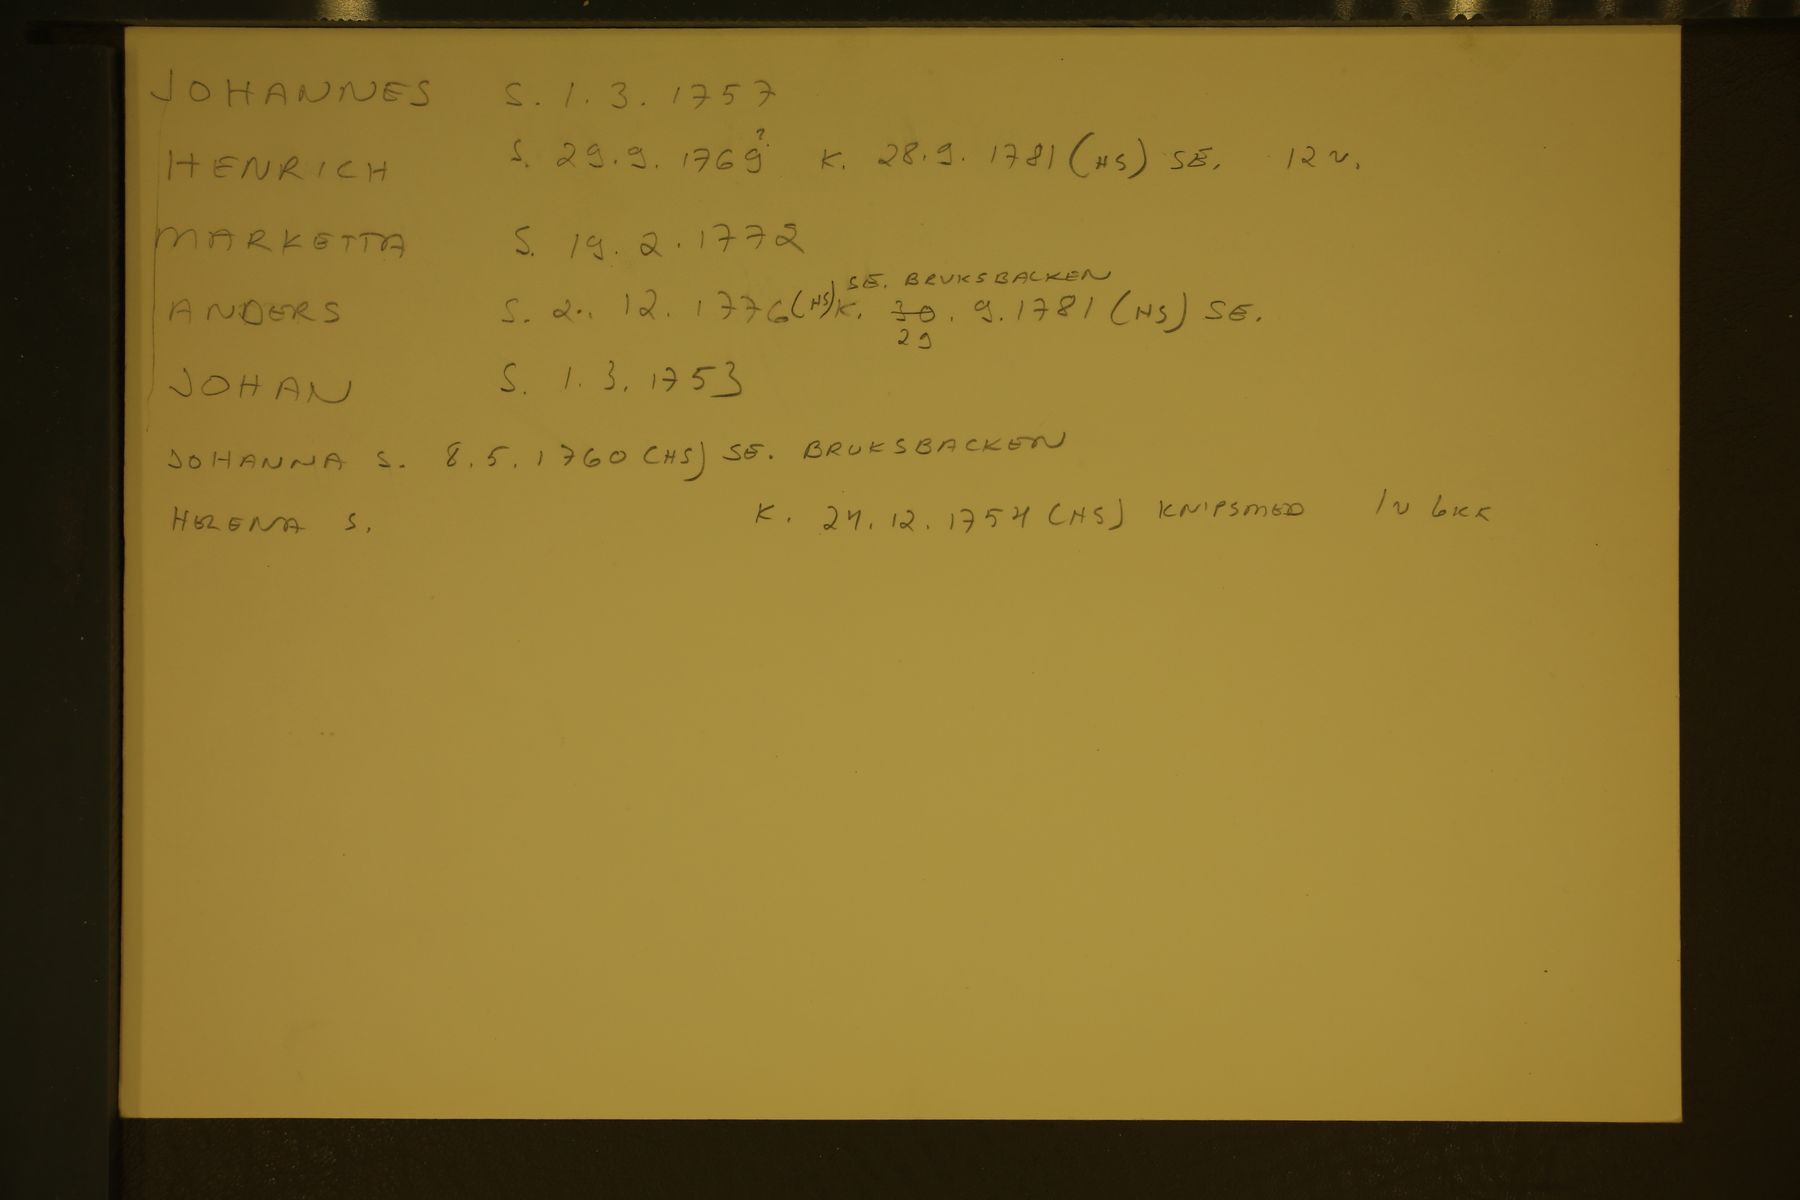 JOHANNES S. 1.3.1757
HENRICH S. 29.9.1769? K. 28.9.1781 (HS) SE. 12 v.
MARKETTA S. 19.2.1772
SE. BRUKSBACKEN
ANDERS S. 2.. 12. 1776 (HS) K. 30. 9. 1781 (HS) SE.
29
JOHAN S. 1.3.1753
JOHANNA S. 8.5.1760 (HS) SE. BRUKSBACKEN
HELENA S. K. 24.12.1754 (HS) KNIPSMED 1v 6kk